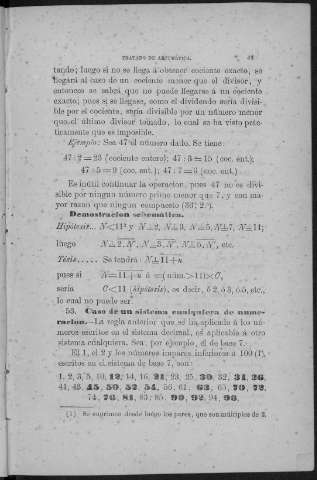 TRATADO DE ARITMÉTICA.
tando; luego si no se llega á obtener cociente exacto, se
llegará al caso de un cociente menor que el divisor, y
entonces se sabrá que no puede llegarse á un cociente
exacto; pues si se llegase, como el dividendo sería divisi-
ble por el cociente, sería divisible por un número menor
que el último divisor tomado, lo cual se ha visto prác-
ticamente que es imposible.
Ejemplo: Sea 47 el número dado. Se tiene:
47:2=23 (cociente entero); 47:3=15 (coc. ent.);
47:5=9 (coc. ent.); 47:7=6 (coc. ent.)
Es inútil continuar la operación, pues 47 no es divi-
sible por ningún número primo menor que 7, y con ma-
yor razón que ningún compuesto
Demostración schemática.
Hipótesis... N<11² y
luego
Tésis..... Se tendrá
pues si
sería C<11 (hipótesis), es decir, ó 2, ó 3, ó 5, etc.,
lo cual no puede ser.
53. Caso de un sistema cualquiera de nume-
ración.—La regla anterior que se ha aplicado á los nú-
meros escritos en el sistema decimal, es aplicable á otro
sistema cualquiera. Sea, por ejemplo, el de base 7.
El 1, el 2 y los números impares inferiores á 100 (1),
escritos en el sistema de base 7, son:
1, 2, 3, 5, 10, 12, 14, 16, 21, 23, 25, 30, 32,
74, 76, 81, 83, 85, 90, 92, 94, 98.
(1) Se suprimen desde luego los pares, que son múltiplos de 2.